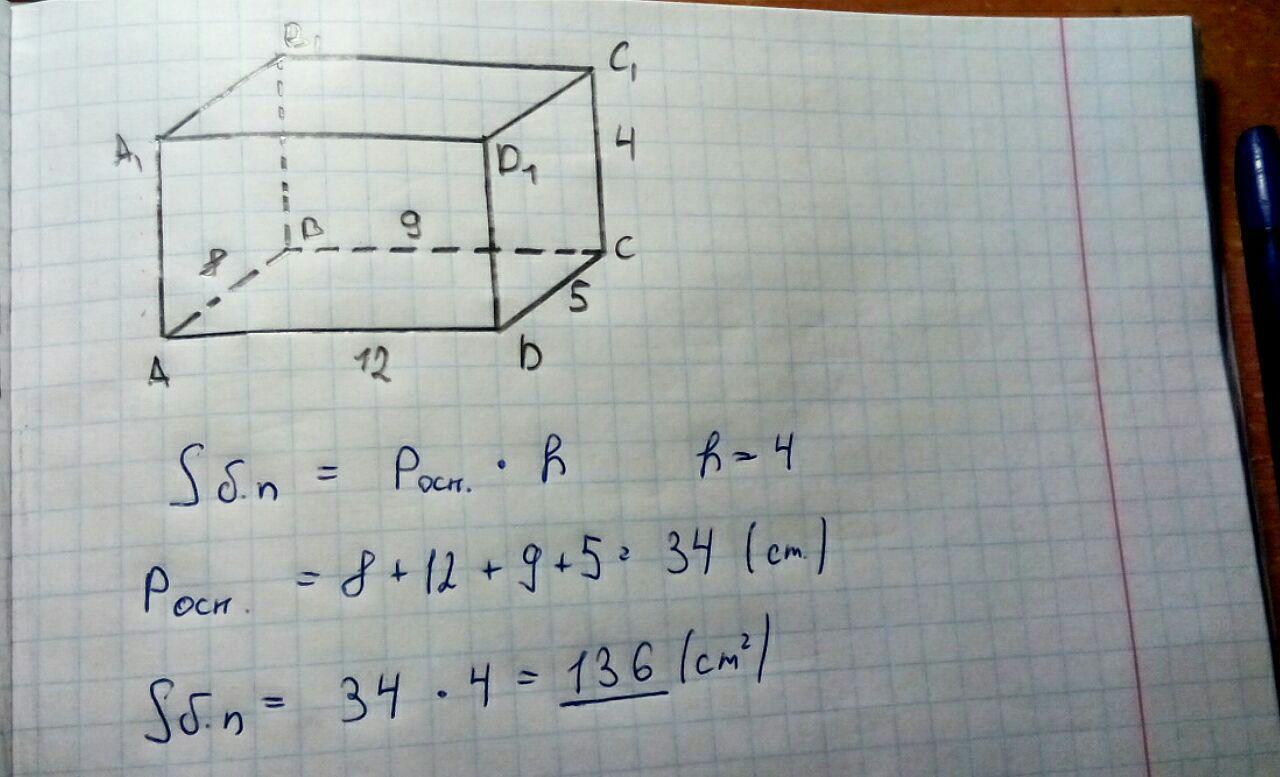 B₁
C₁
A₁
D₁
4
B
9
8
C
5
A
12
D
Sб.п = Pосн. · h h = 4
Pосн. = 8 + 12 + 9 + 5 = 34 (см.)
Sб.п = 34 · 4 = 136 (см²)